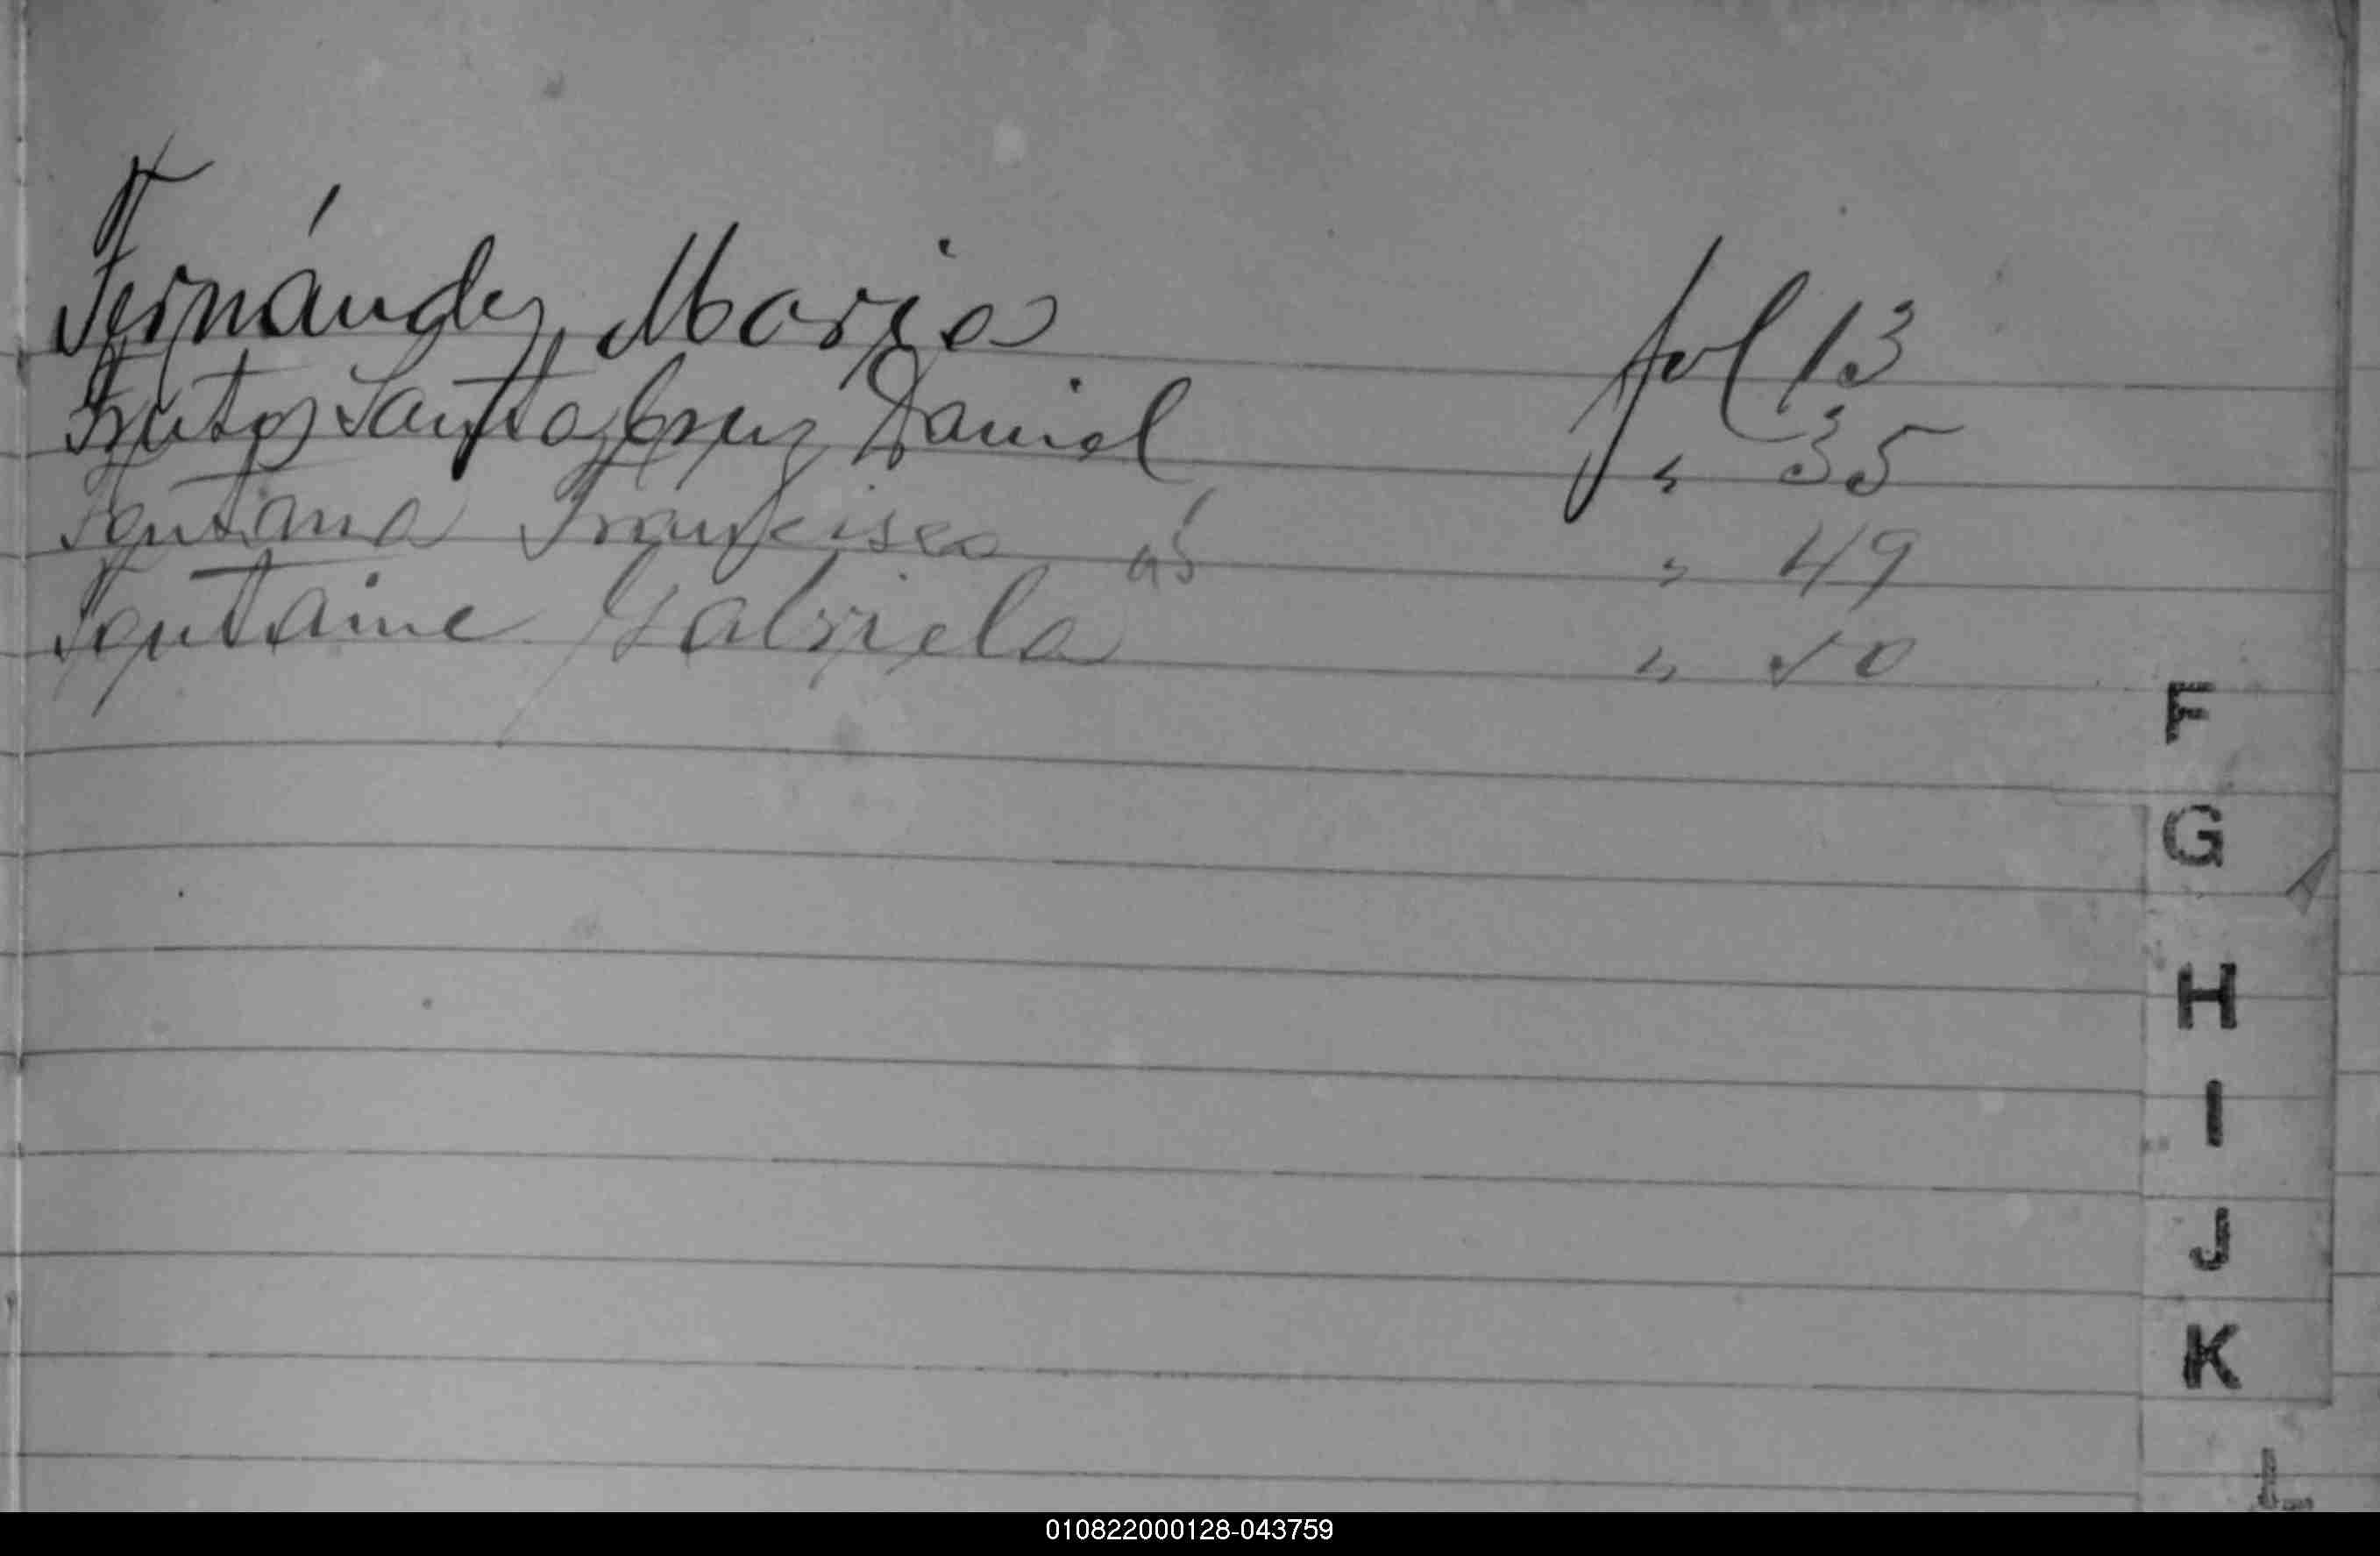 Fernández, Maria fol 13
Frutos Santa Cruz Daniel " 35
Fontana Francisca " 49
Fontaine Gabriela " 50
F
G
H
I
J
K
L
010822000128-043759